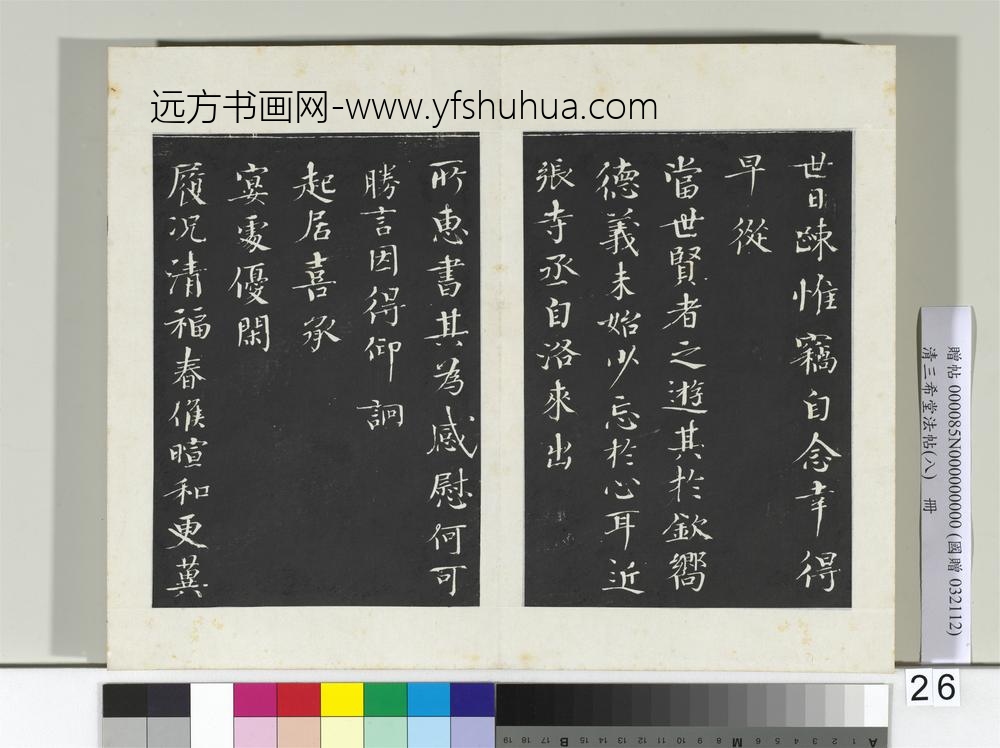 远方书画网-www.yfshuhua.com
世日疎惟竊自念幸得
早從
當世賢者之遊其於欽嚮
德義未始少忘於心耳近
張寺丞自洛來出
所惠書其為感慰何可
勝言因得仰詗
起居喜承
宴處優閑
履况清福春候暄和更冀
贈帖 000085N000000000 (國贈 032112)
清三希堂法帖(八) 冊
26